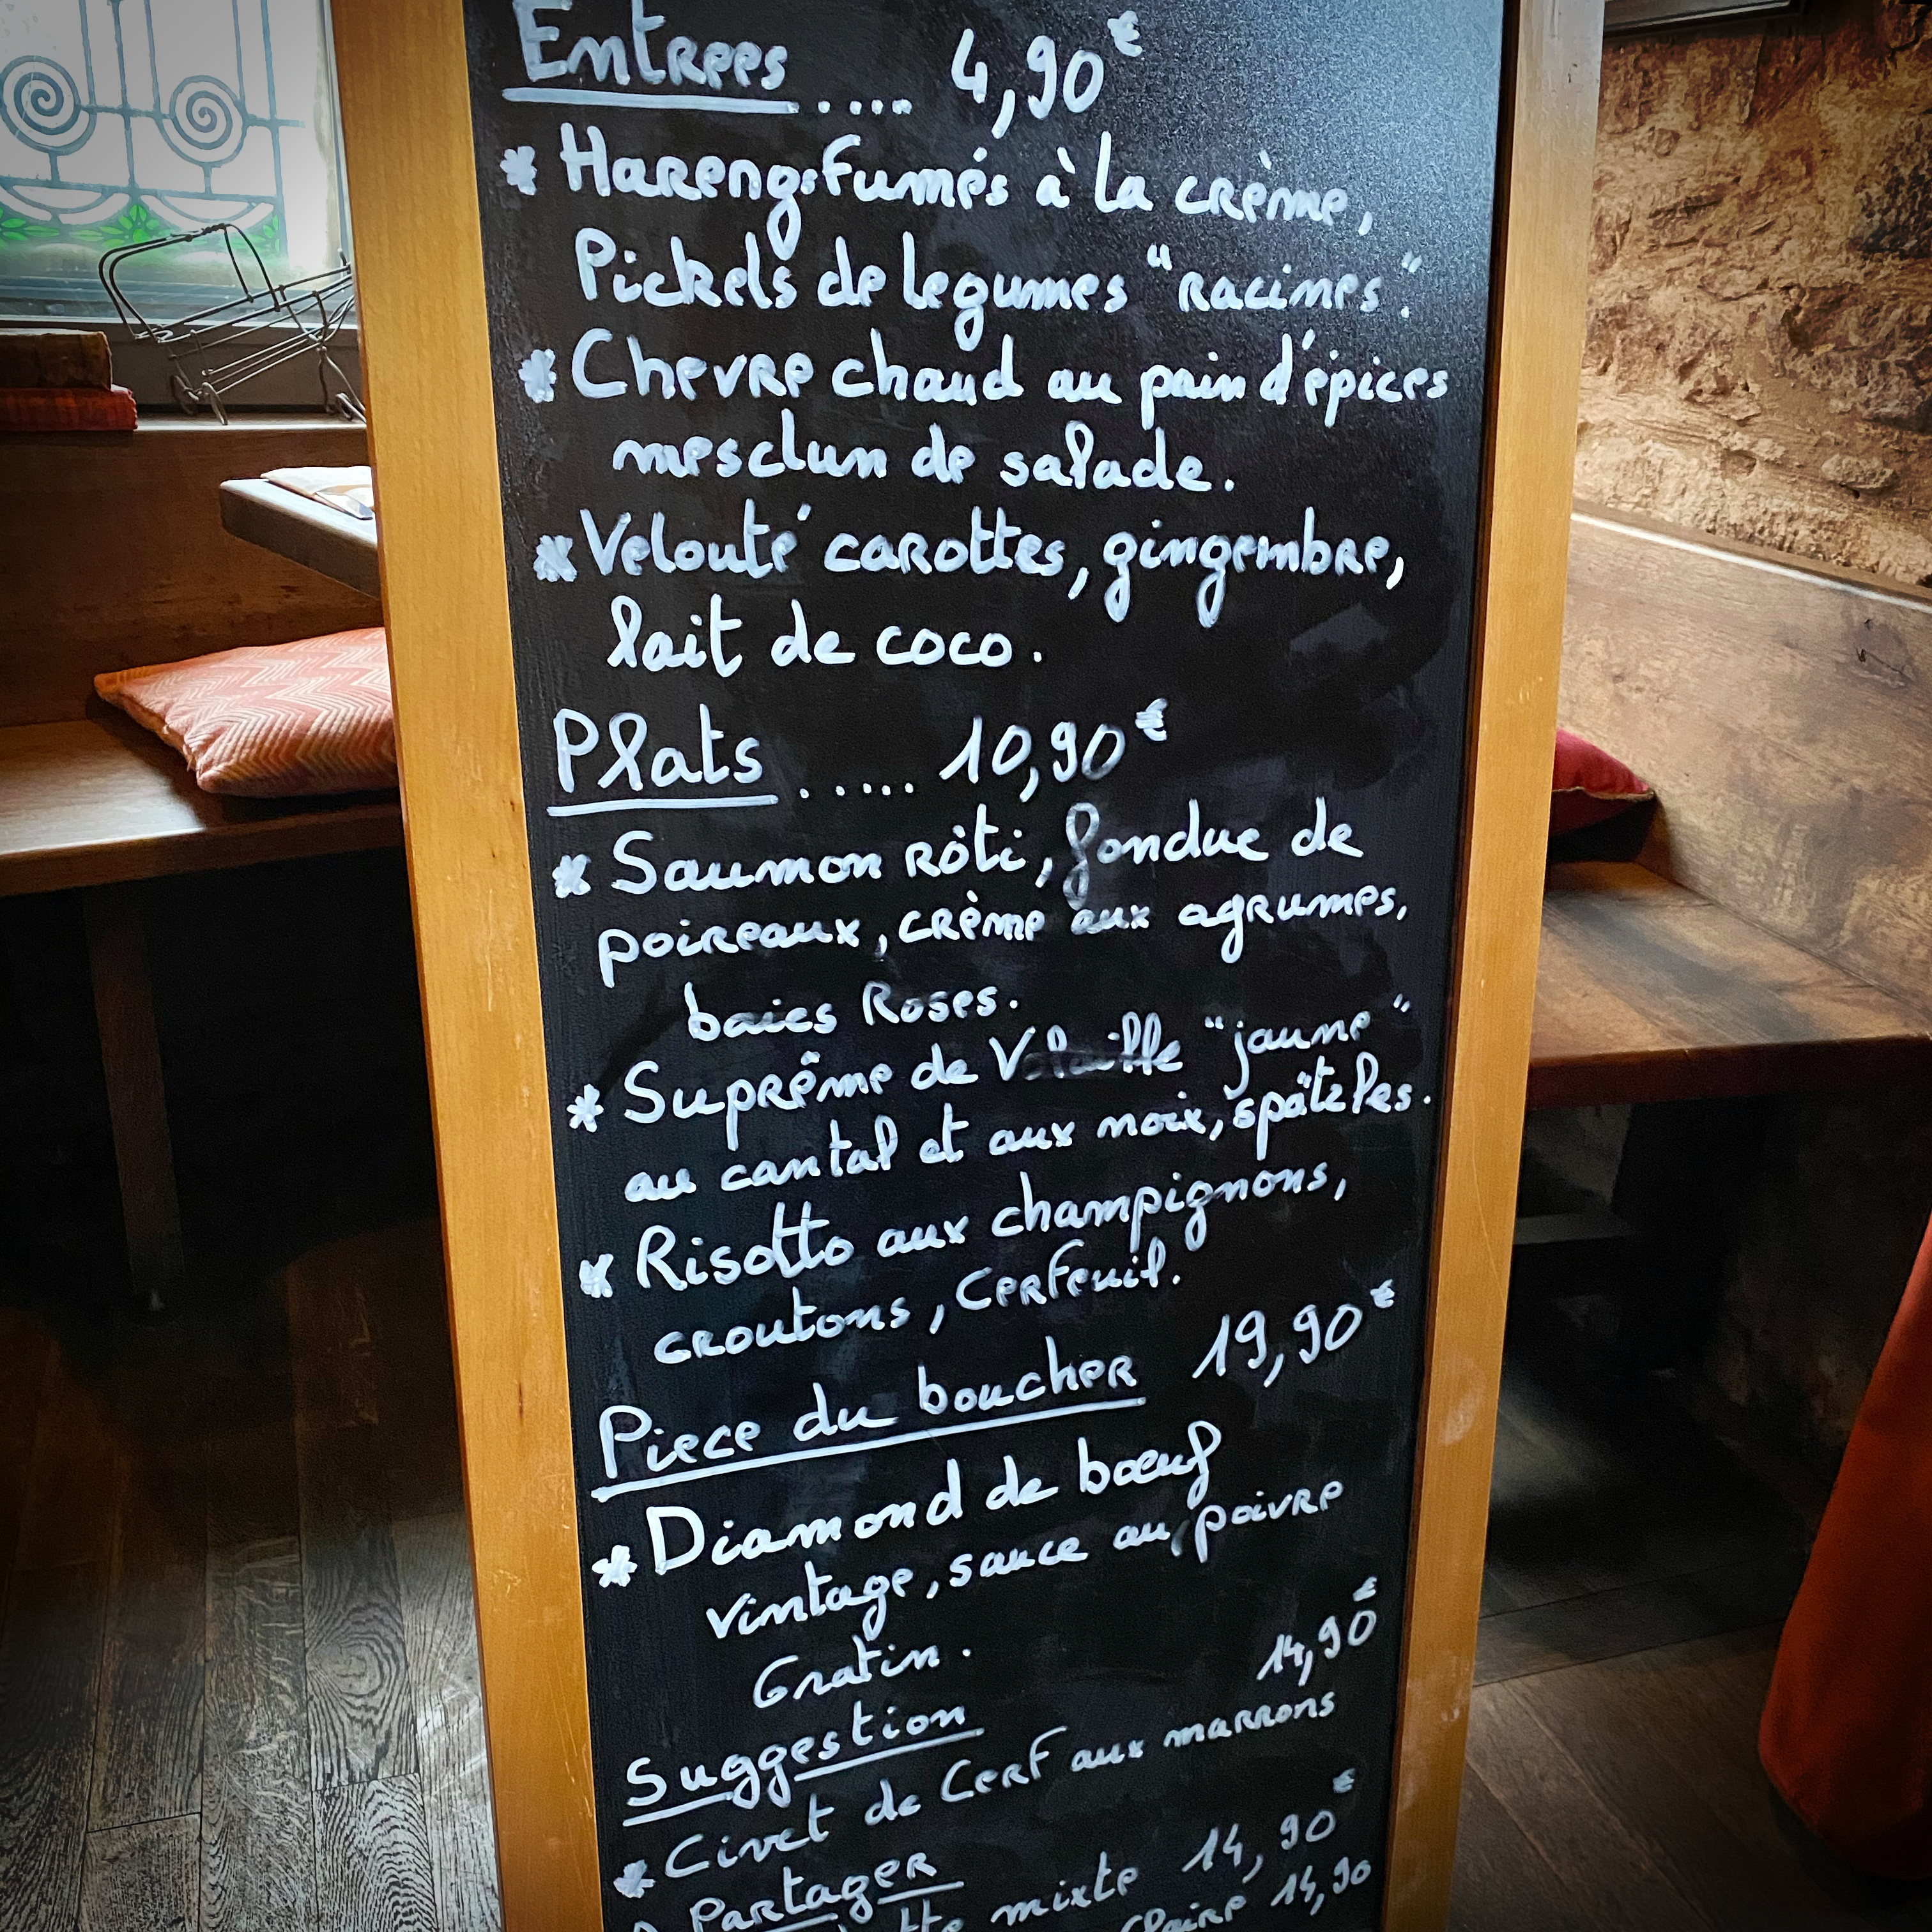 Entrees ..... 4,90€
* Harengs fumés à la crème,
Pickels de legumes "racines".
* Chevre chaud au pain d'épices
mesclun de salade.
* Velouté carottes, gingembre,
lait de coco.
Plats ..... 10,90€
* Saumon rôti, fondue de
poireaux, crème aux agrumes,
baies Roses.
* Suprême de Volaille "jaune"
au cantal et aux noix, spätzles.
* Risotto aux champignons,
croutons, cerfeuil.
Piece du boucher 19,90€
* Diamond de bœuf
vintage, sauce au poivre
Gratin.
Suggestion 14,90€
* Civet de Cerf aux marrons
Partager
mixte 14,90€
Claire 14,90